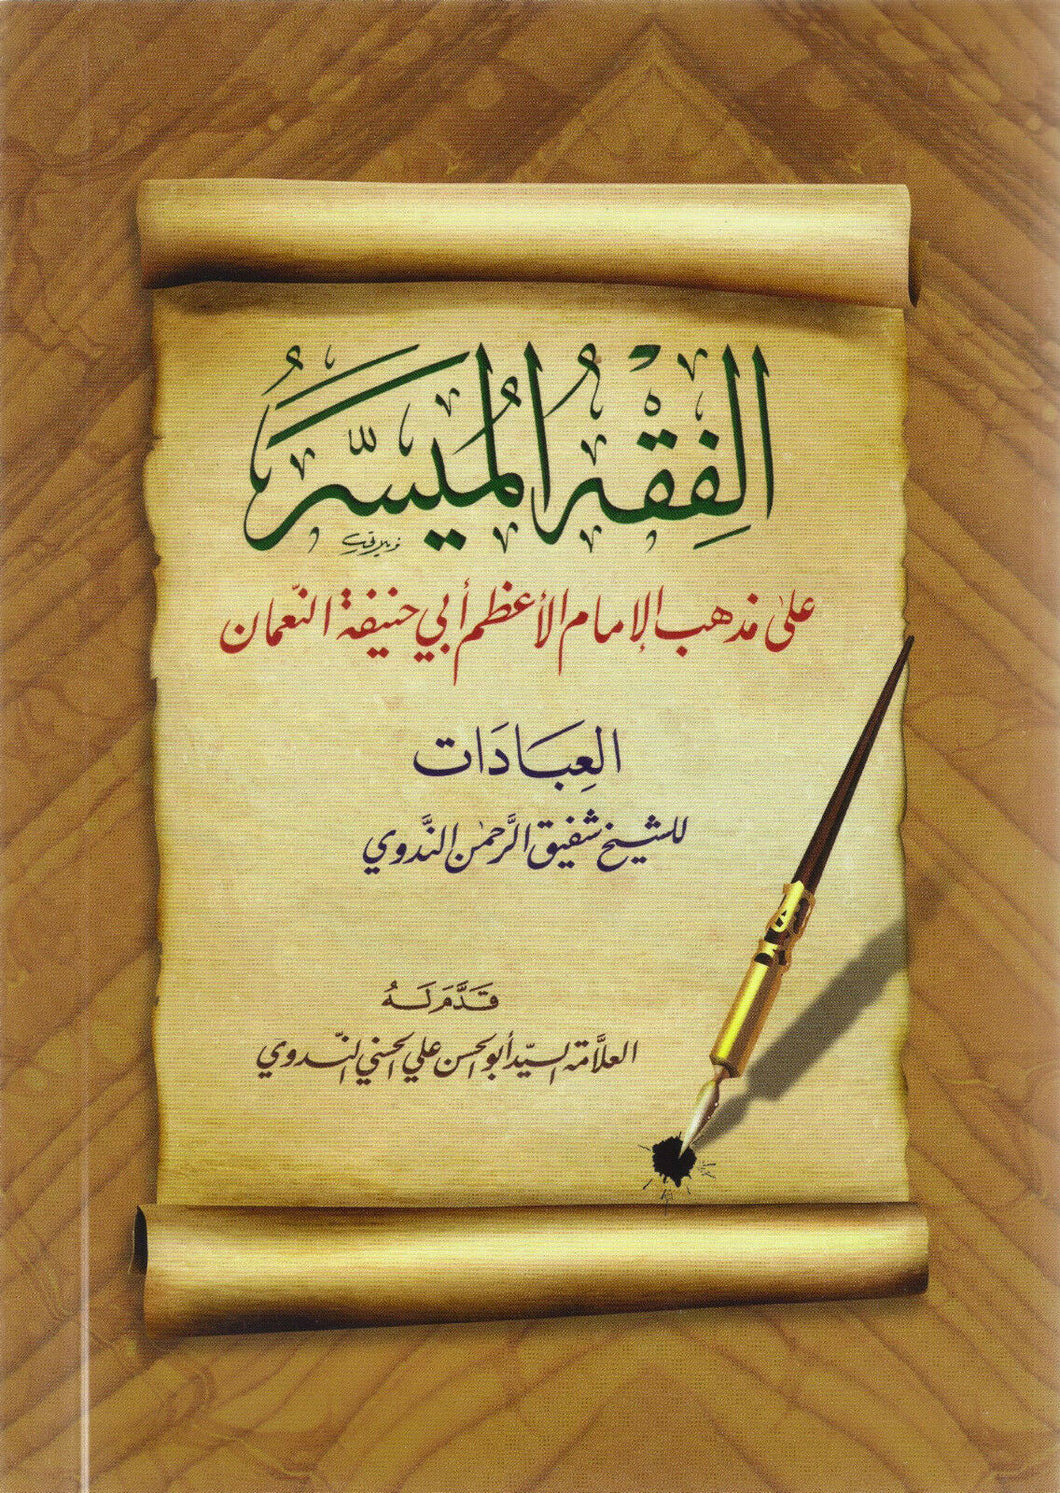 الفِقْهُ المُيَسَّرُ
على مذهب الإمام الأعظم أبي حنيفة النّعمان
العِبَادَات
للشيخ شفيق الرَّحمٰن النَّدوي
قَدَّمَ لَهُ
العلَّامة السيّد أبو الحسن علي الحسني النّدوي